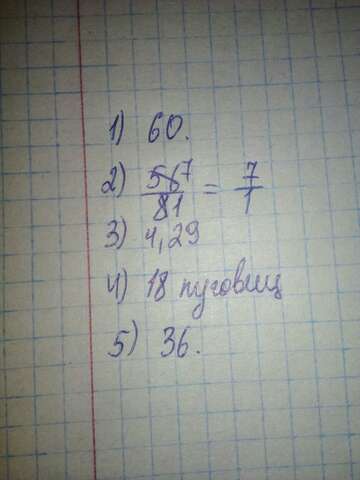 1) 60.
2) 56⁷/81 = 7/1
3) 4,29
4) 18 пуговиц
5) 36.